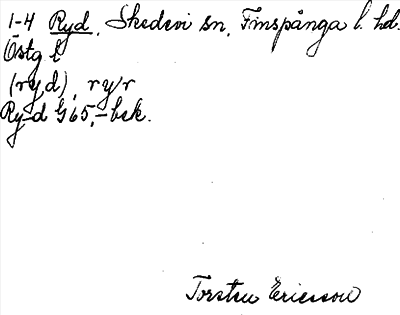 1-4 Ryd, Skedevi sn, Finspånga l. hd.
Östg l
(ryd), ry/r
Ry-d G 65,- bsk.
Torsten Ericsson